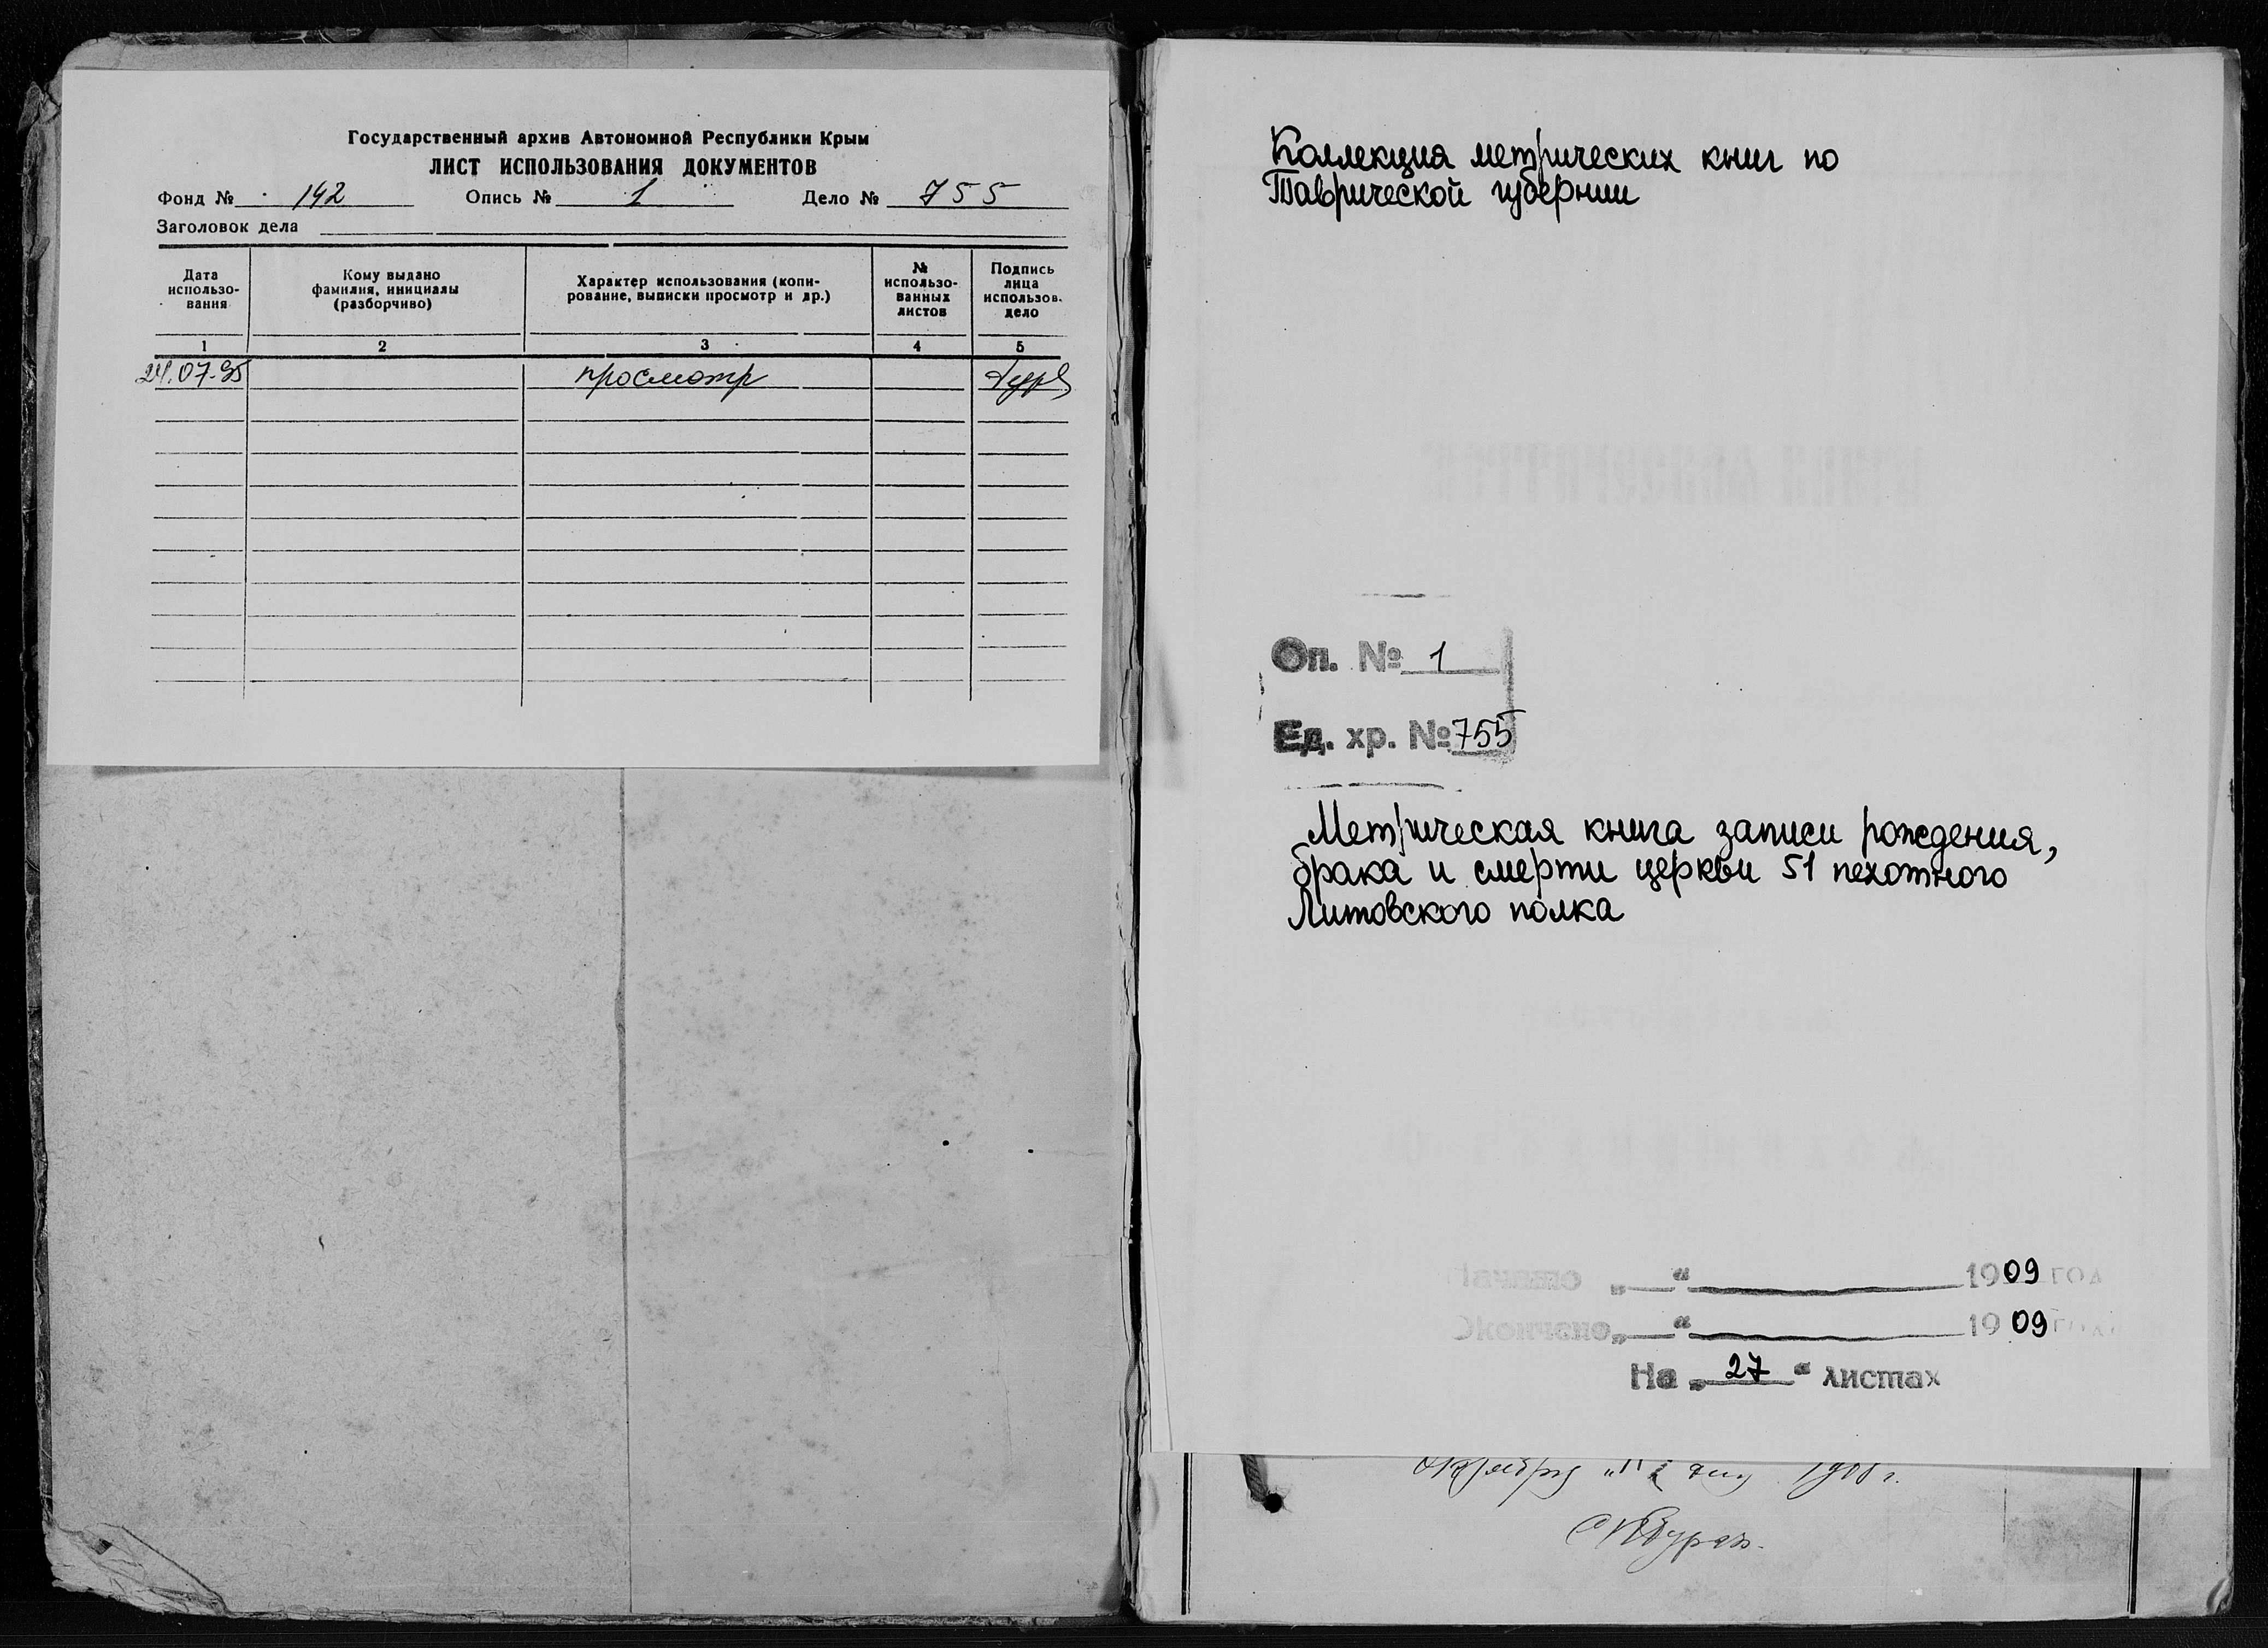 Государственный архив Автономной Республики Крым
ЛИСТ ИСПОЛЬЗОВАНИЯ ДОКУМЕНТОВ
Фонд № 142 Опись № 1 Дело № 755
Заголовок дела
Дата использо-вания
Кому выдано фамилия, инициалы (разборчиво)
Характер использования (копи-рование, выписки просмотр и др.)
№ использо-ванных листов
Подпись лица использов. дело
1 2 3 4 5
24.07.95 просмотр
Коллекция метрических книг по
Таврической губернии
Оп. № 1
Ед. хр. № 755
Метрическая книга записи рождения,
брака и смерти церкви 51 пехотного
Литовского полка
Начато „ “ 1909 год
Окончено „ “ 1909 года
На „ 27 “ листах